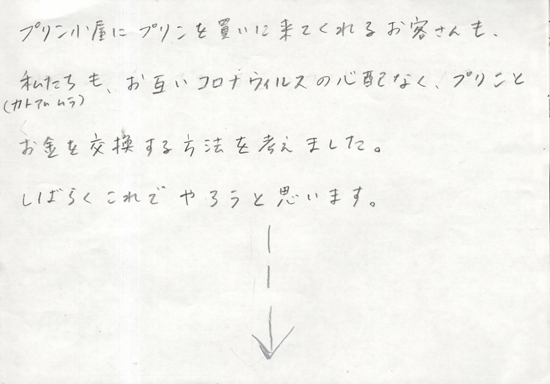 プリン小屋にプリンを買いに来てくれるお客さんも、
私たちも、お互いコロナウィルスの心配なく、プリンと
(カトアムムラ)
お金を交換する方法を考えました。
しばらくこれでやろうと思います。